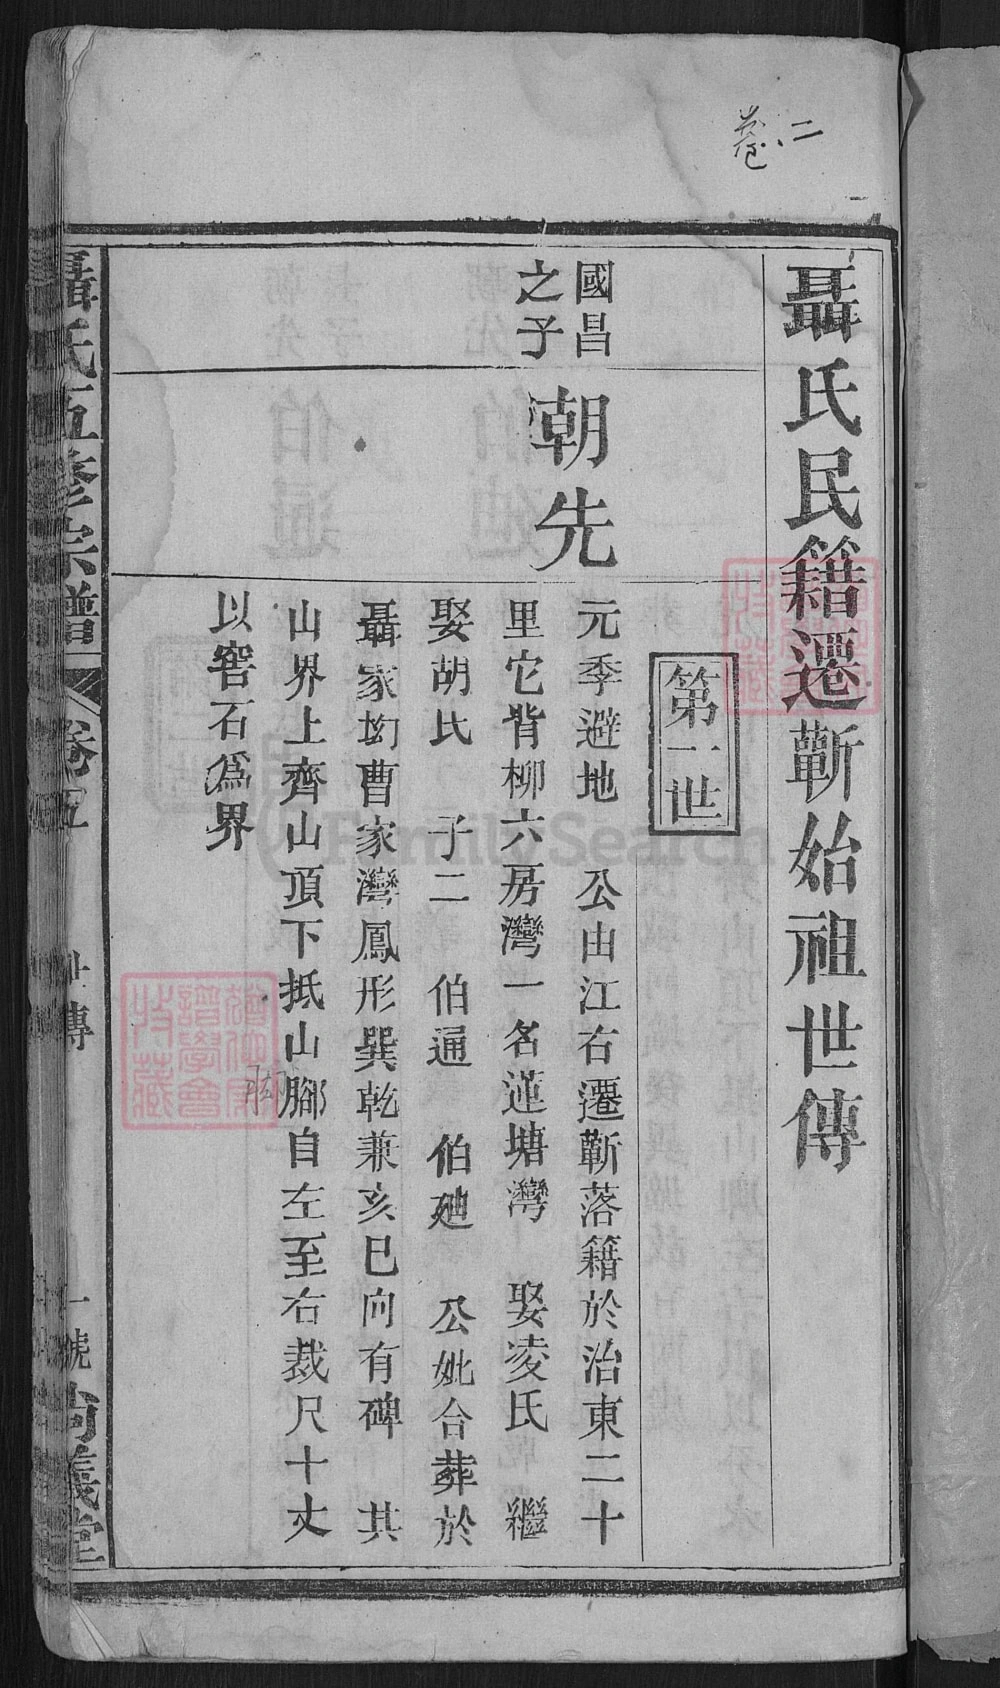 卷二
聶氏民籍遷蘄始祖世傳
第一世
國昌
之子
朝先
元季避地 公由江右遷蘄落籍於治東二十
里它背柳六房灣一名蓮塘灣 娶凌氏 繼
娶胡氏 子二 伯通 伯廸 公妣合葬於
聶家㘭曹家灣鳳形巽乾兼亥巳向有碑 其
山界上齊山頂下抵山腳自左至右裁尺十丈
以窖石爲界
聶氏五修宗譜 卷五 世傳 一號 尚義堂
特藏
譜學會
特藏
FamilySearch